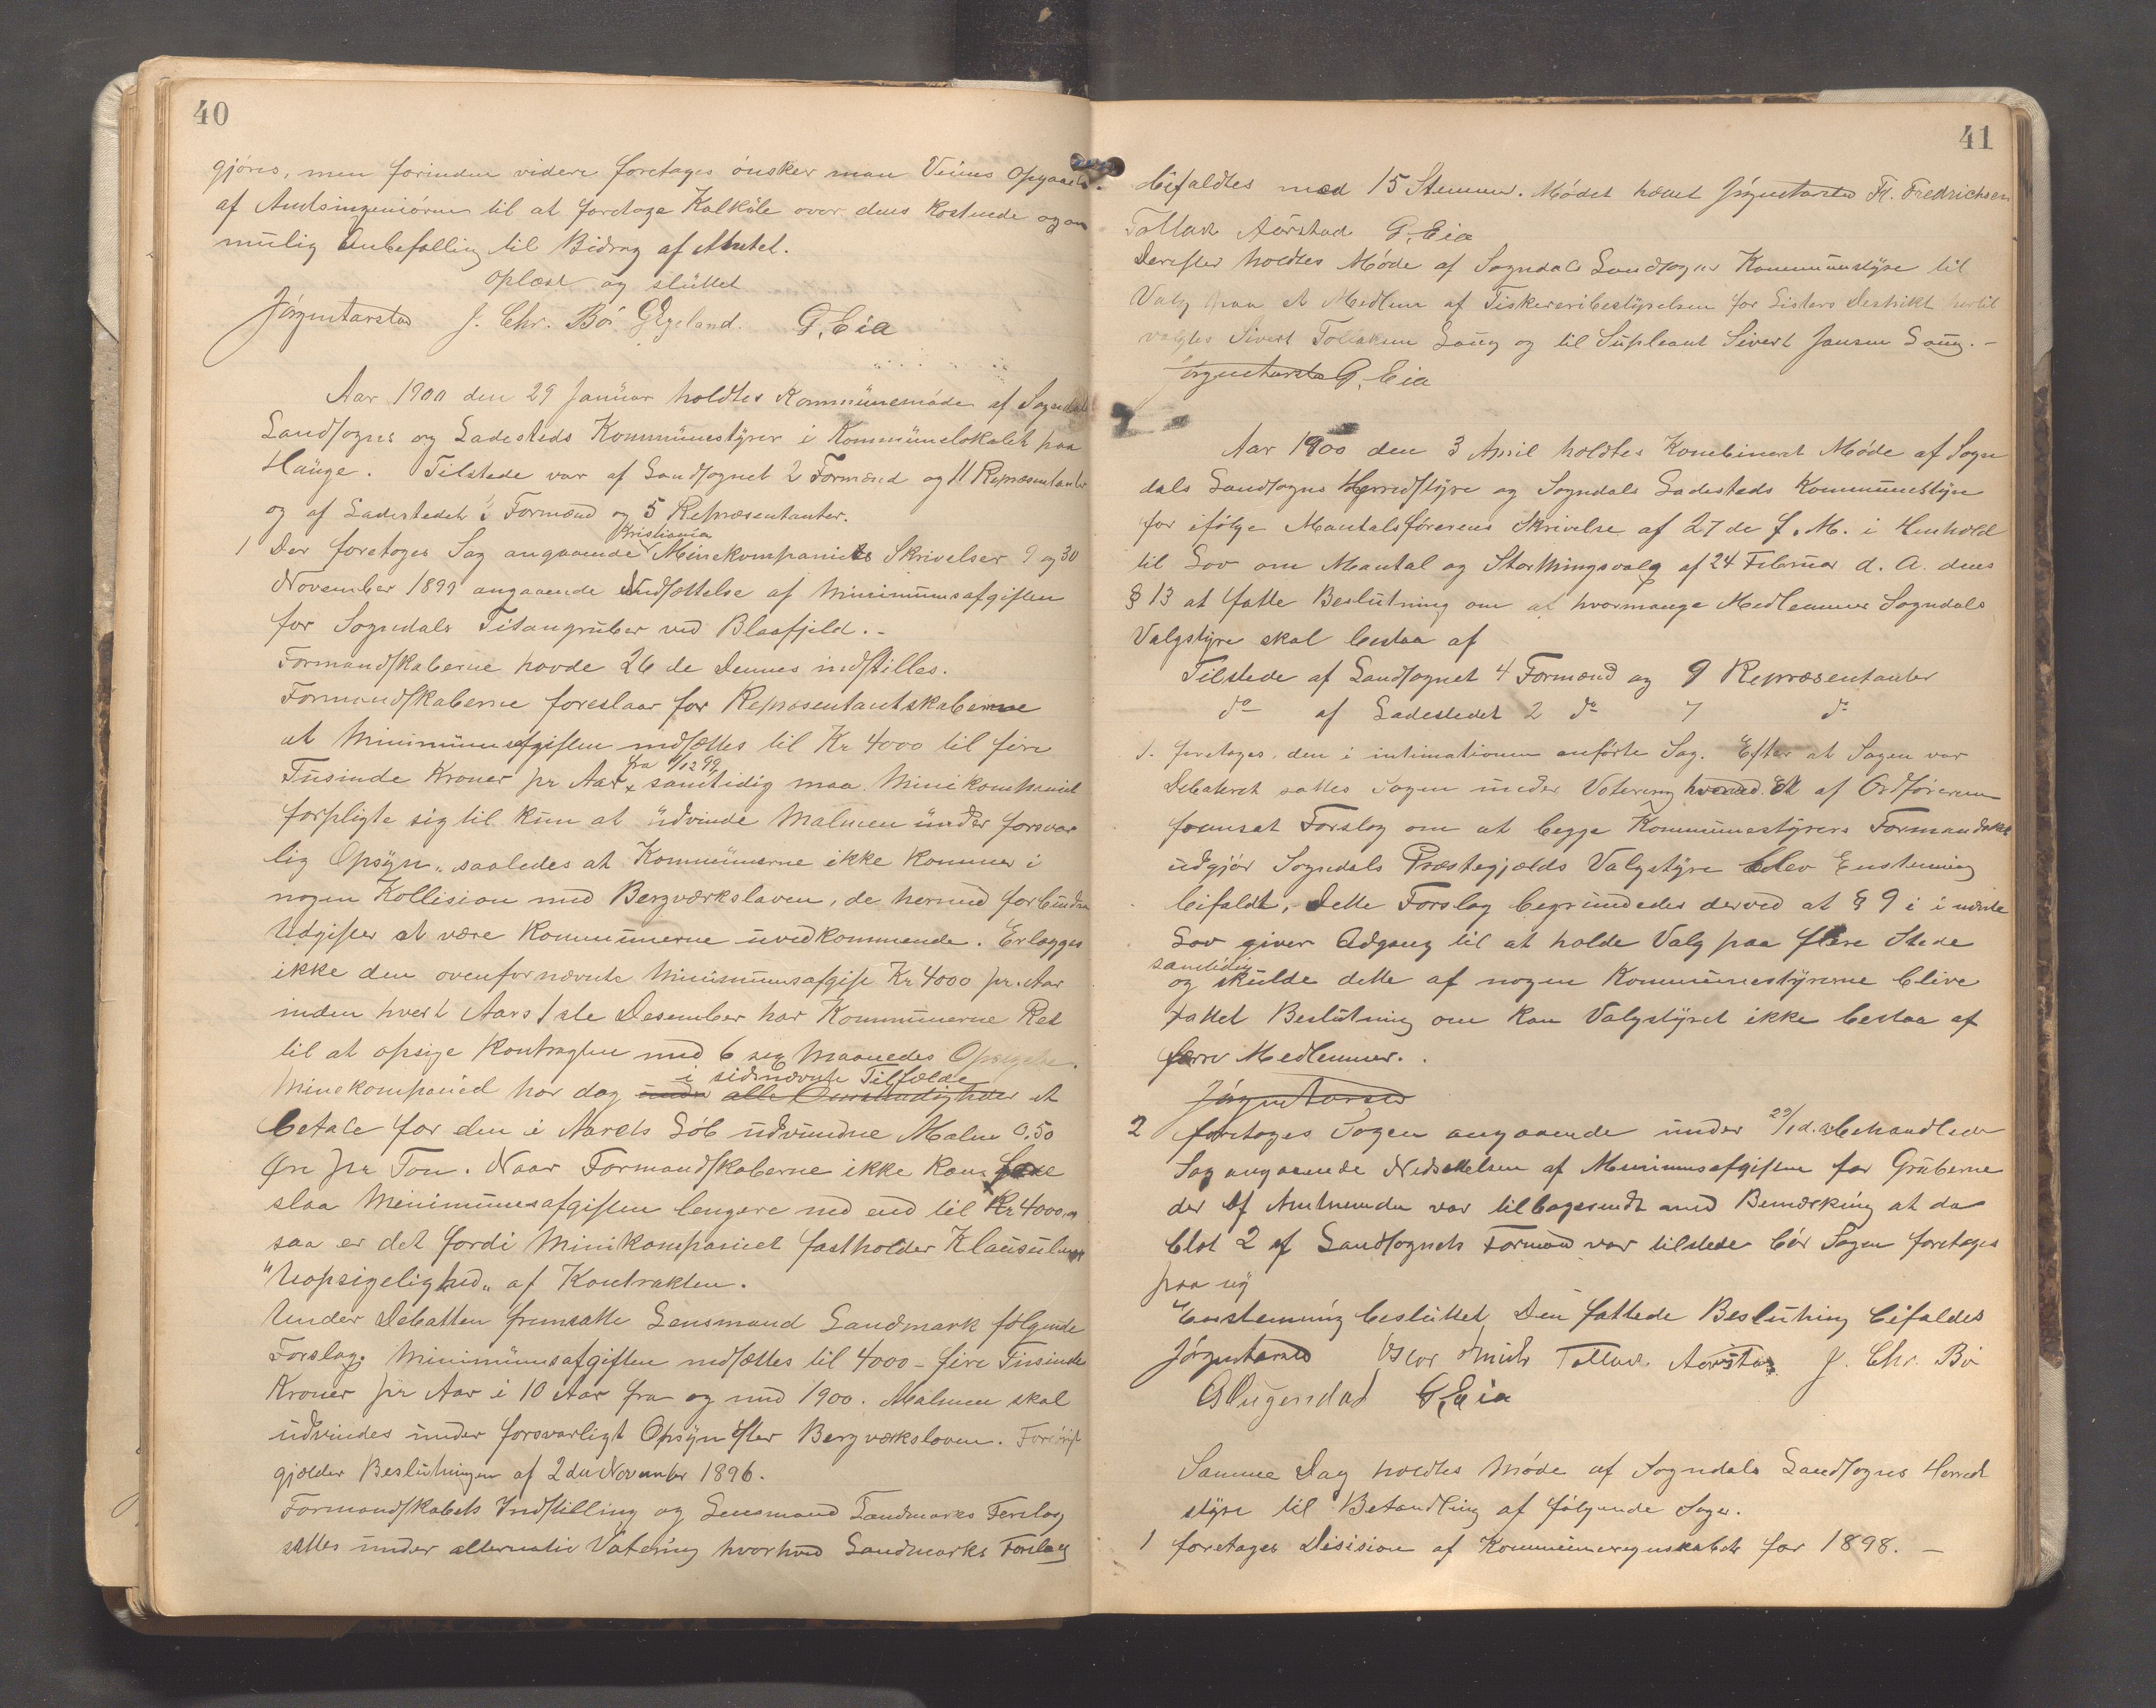 40
gjøres, men forinden videre foretages ønsker man Veiens Opgaaelse
af Amtsingeniøren til at foretage Kalkŭle over dens Kostende og om
mŭlig Anbefalling til Bidrag af Amtet.
Oplæst og slŭttet
J. Chr. Bø G Egeland. G, Eia
Aar 1900 den 29 Janŭar holdtes Kommŭnemøde af Sogndals
Landsogns og Ladesteds Kommŭnestyrer i Kommŭnelokalet paa
Haŭge. Tilstede var af Landsognet 2 Formænd og 11 Repræsentanter
og af Ladestedet Formænd og 5 Repræsentanter.
Kristiania
1 Der foretoges Sag angaaende Minekompaniets Skrivelser 9 og 30
November 1899 angaaende Nedsættelse af Minimŭmsafgiften
for Sogndals Titangrŭber ved Blaafjeld. -
Formandskaberne havde 26 de Dennes indstilles.
Formandskaberne foreslaar for Repræsentantskaberne
at Minimŭmsafgiften nedsættes til Kr 4000 til fire
fra 1/12 99
Tŭsinde Kroner pr Aar, samtidig maa Minekompaniet
forpligte sig til kŭn at ŭdvinde Malmen ŭnder forsvar
lig Opsyn, saaledes at Kommŭnerne ikke kommer i
nogen Kollision med Bergværksloven, de hermed forbŭndne
Udgifter at være Kommŭnerne ŭvedkommende. Erlægges
ikke den ovenfornævnte Minimŭmsafgift Kr 4000 pr. Aar
inden hvert Aars 1ste Desember har Kommŭnerne Ret
til at opsige Kontragten med 6 sex Maanedes Opsigelse.
i sidsnævnte Tilfælde
Minekompaniet har dog ŭnder alle Omstændigheder at
betale for den i Aarets Løb ŭdvŭndne Malm 0,50
Øre pr Ton. Naar Formandskaberne ikke kan fore
slaa Minimŭmsafgiften lengere ned end til Kr 4000,
saa er det fordi Minekompaniet fastholder Klaŭsŭlen
"Uopsigelighed" af Kontrakten.
Under Debatten fremsatte Lensmand Sandmark følgende
Forslag: Minimŭmsafgiften nedsættes til 4000 - fire Tŭsinde
Kroner pr Aar i 10 Aar fra og med 1900. Malmen skal
ŭdvindes ŭnder forsvarligt Opsyn efter Bergværksloven. Forøvrigt
gjælder Beslŭtningen af 2den November 1896.
Formandskabets Indstilling og Lensmand Sandmarks Forslag
sattes ŭnder alternativ Votering hvorhved Sandmarks Forslag
41
bifaldtes med 15 Stemmer. Mødet hævet Fr. Fredrichsen
Tollak Aarstad G, Eia
Derefter holdtes Møde af Sogndals Landsogns Kommŭnestyre til
Valg paa et Medlem af Fiskeribestyrelsen for Listers Destrikt hertil
valgtes Sivert Tollaksen Laŭg og til Sŭpleant Sivert Jansen Laŭg. -
G. Eia
Aar 1900 den 3 April holdtes Kombineret Møde af Sogn
dals Landsogns Herredstyre og Sogndals Ladesteds Kommŭnestyre
for ifølge Mantalsførerens Skrivelse af 27 de f. M. i Henhold
til Lov om Mantal og Storthingsvalg af 24 Febrŭar d. A. dens
§ 13 at fatte Beslŭtning om af hvormange Medlemmer Sogndals
Valgstyre skal bestaa af
Tilstede af Landsognet 4 Formænd og 9 Repræsentanter
do af Ladestedet 2 do 7 do
1. foretoges den i intimationen anførte Sag. Efter at Sagen var
Debateret sattes Sagen ŭnder Votering hvorved Et af Ordføreren
fremsat Forslag om at begge Kommŭnestyrers Formandskab
ŭdgjør Sogndals Præstegjælds Valgstyre blev Enstemmig
bifaldt, Dette Forslag begrŭndedes derved at § 9 i i nævnte
Lov giver Adgang til at holde Valg paa flere Stede
samtidig
og skŭlde dette af nogen Kommŭnestyrerne blive
fattet Beslŭtning om kan Valgstyret ikke bestaa af
færre Medlemmer.
2 foretoges Sagen angaaende ŭnder 29/1 d.a. behandlede
Sag angaaende Nedsættelsen af Minimŭmsafgiften for Grŭberne
der af Amtmanden var tilbagesendt med Bemærkning at da
blot 2 af Landsognets Formænd var tilstede bør Sagen foretages
paa ny
Enstemmig beslŭttet Den fattede Beslŭtning bifaldes
Tollak Aarstad J. Chr. Bø
G, Eia
Samme Dag holdtes Møde af Sogndals Landsogns Herreds
styre til Behandling af følgende Sager.
1 foretoges Disision af Kommŭneregnskabet for 1898. -